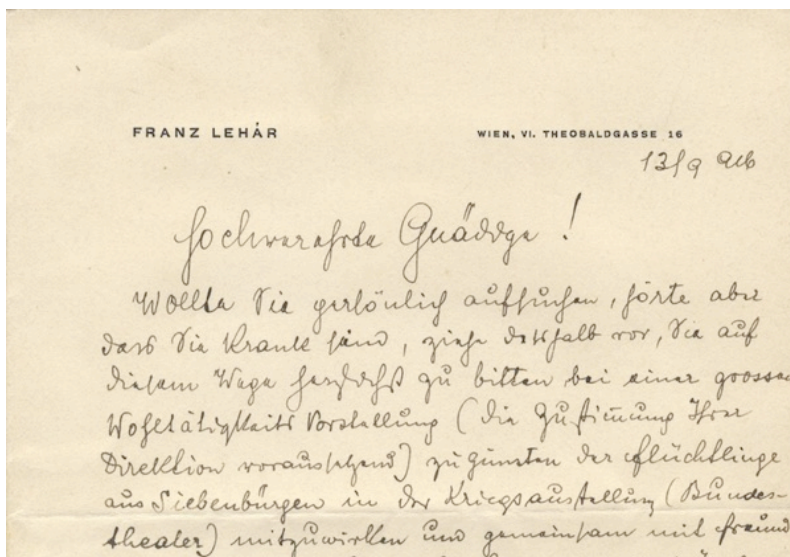 FRANZ LEHÁR
WIEN, VI. THEOBALDGASSE 16
13/9 916
Hochverehrte Gnädige!
Wollte Sie persönlich aufsuchen, hörte aber
dass Sie krank sind, ziehe deshalb vor, Sie auf
diesem Wege herzlichst zu bitten bei einer grossen
Wohltätigkeits Vorstellung (die Zustimmung Ihrer
Direktion voraussetzend) zu Gunsten der Flüchtlinge
aus Siebenbürgen in der Kriegsausstellung (Bundes-
theater) mitzuwirken und gemeinsam mit Freund